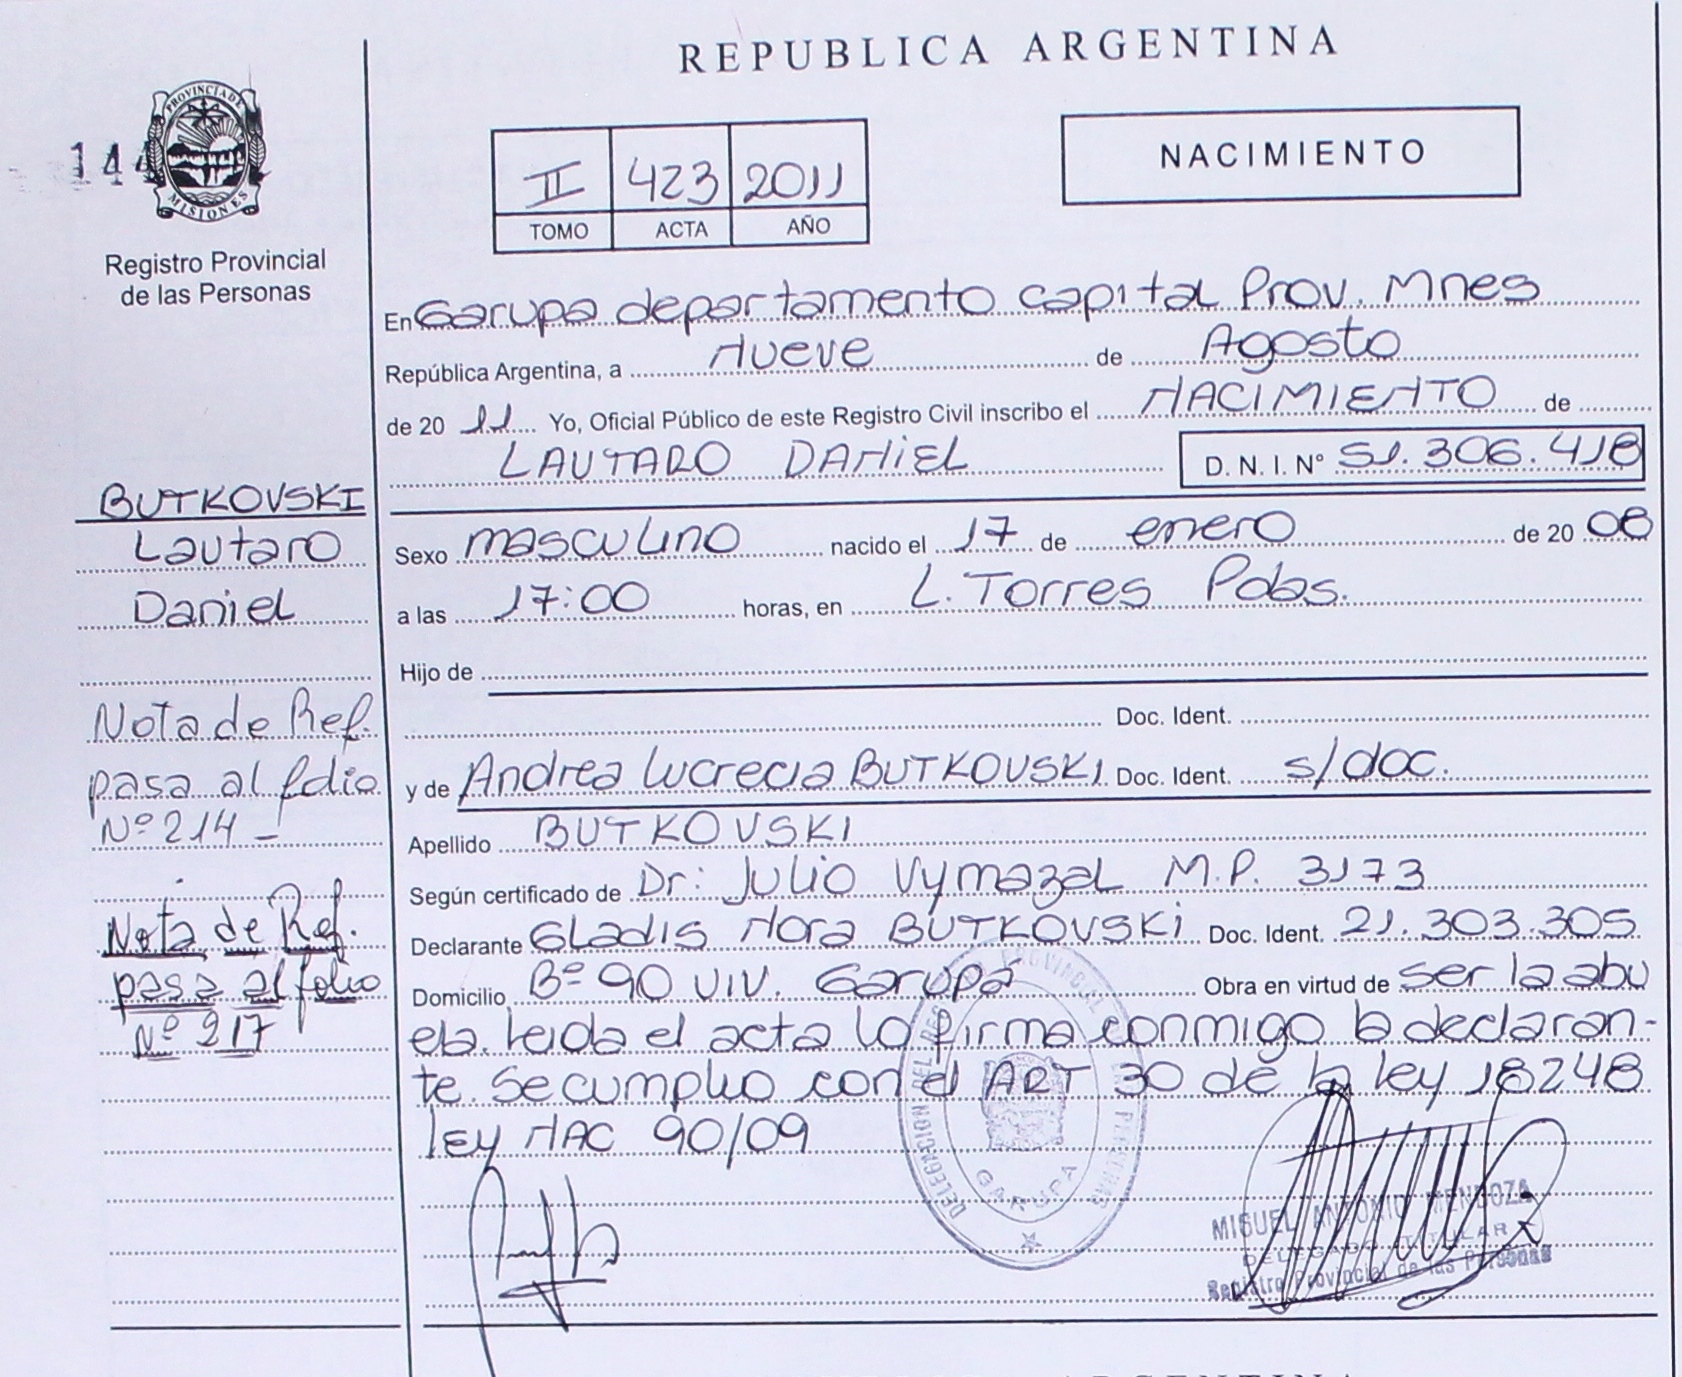 REPUBLICA ARGENTINA
144
PROVINCIA DE
MISIONES
Registro Provincial
de las Personas
NACIMIENTO
II 423 2011
TOMO ACTA AÑO
En Garupa departamento capital Prov. Mnes
República Argentina, a Nueve de Agosto
de 20 11 Yo, Oficial Público de este Registro Civil inscribo el NACIMIENTO de
LAUTARO DANIEL D. N. I. N° 51.306.418
BUTKOVSKI
Lautaro
Daniel
Sexo masculino nacido el 17 de enero de 20 08
a las 17:00 horas, en L. Torres Pdas.
Hijo de
Doc. Ident.
y de Andrea Lucrecia BUTKOVSKI Doc. Ident. s/doc.
Apellido BUTKOVSKI
Según certificado de Dr: Julio Vymazal M.P. 3173
Declarante Gladis Nora BUTKOVSKI Doc. Ident. 21.303.305
Domicilio Bº 90 VIV. Garupa Obra en virtud de ser la abu
ela. leida el acta la firma conmigo la declaran-
te. Se cumplio con el ART 30 de la ley 18248
ley NAC 90/09
Nota de Ref.
pasa al folio
Nº 214 -
Nota de Ref.
pasa al folio
Nº 217
DELEGACION DEL REGISTRO PROVINCIAL DE LAS PERSONAS
GARUPA
MIGUEL ANTONIO MENDOZA
DELEGADO TITULAR
Registro Provincial de las Personas